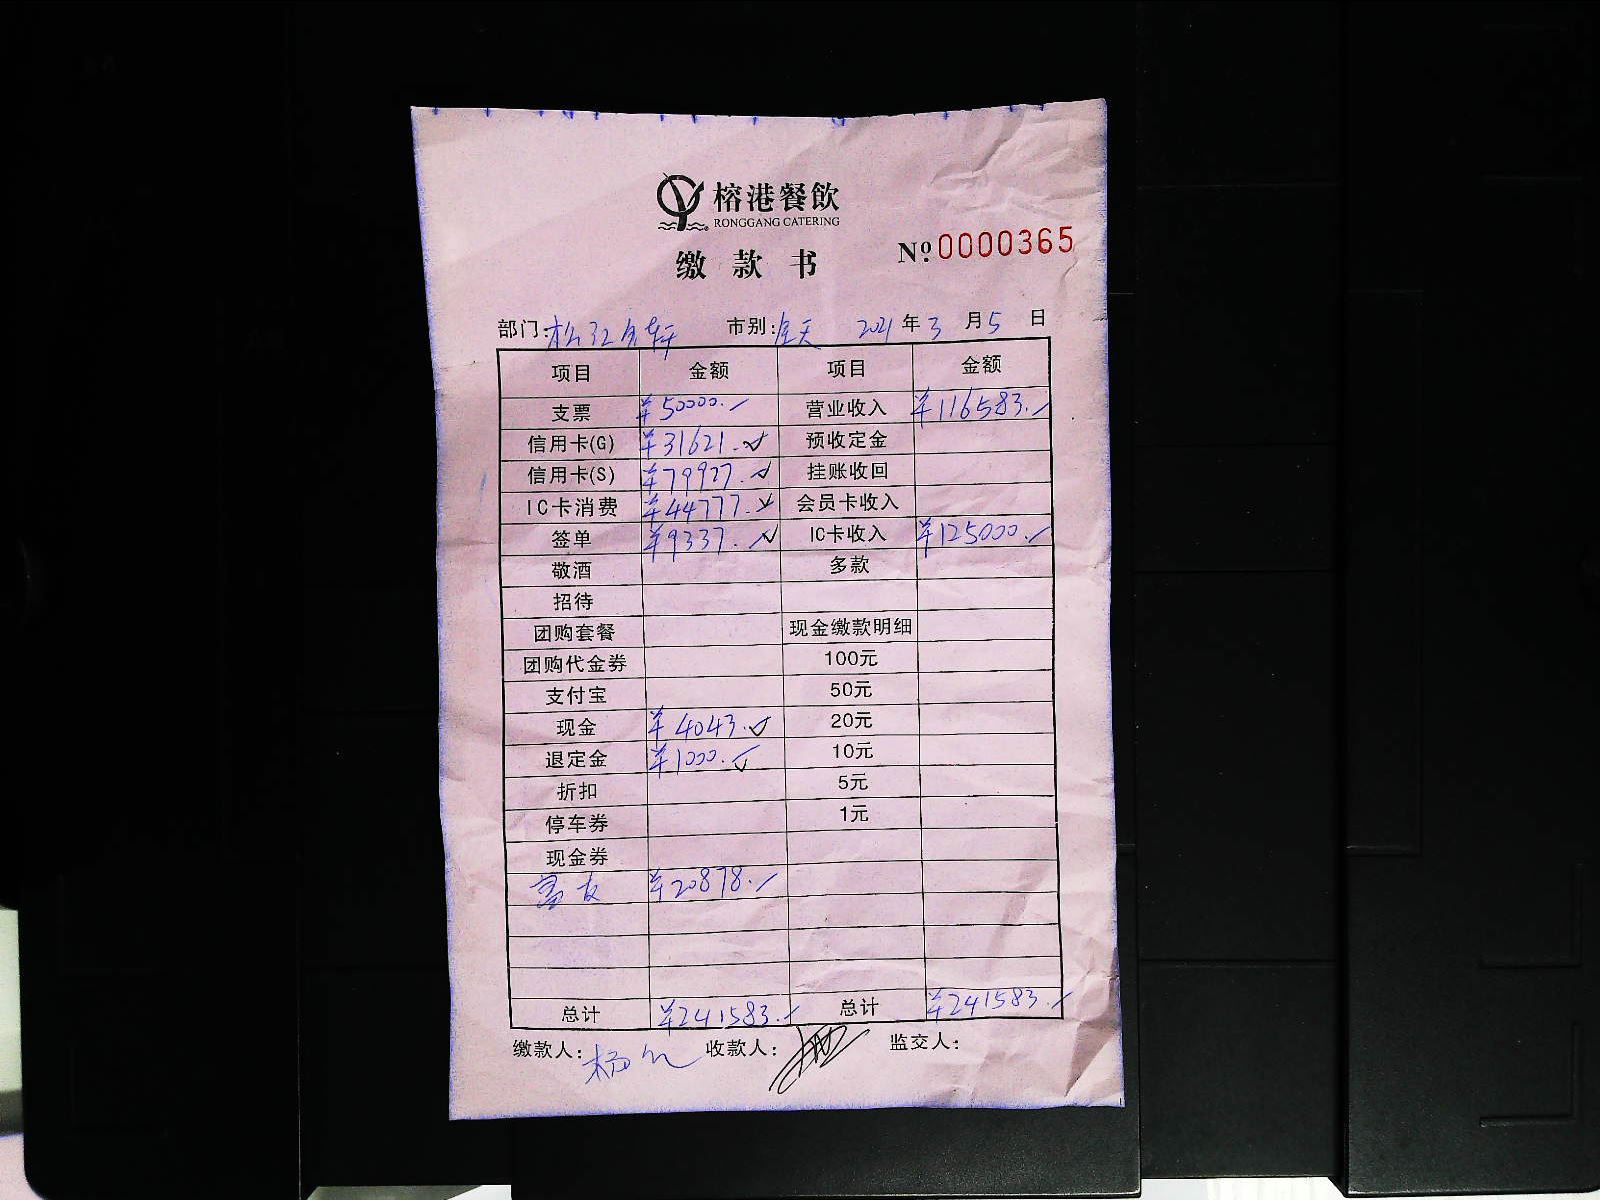 榕港餐飲
RONGGANG CATERING
缴款书
№ 0000365
部门: 松江 市别: 全天 2021年3月5日
项目 金额 项目 金额
支票 ¥50000.- 营业收入 ¥116583.-
信用卡(G) ¥31621.- 预收定金
信用卡(S) ¥79927.- 挂账收回
IC卡消费 ¥44777.- 会员卡收入
签单 ¥9337.- IC卡收入 ¥125000.-
敬酒 多款
招待
团购套餐 现金缴款明细
团购代金券 100元
支付宝 50元
现金 ¥4043.- 20元
退定金 ¥1000.- 10元
折扣 5元
停车券 1元
现金券
¥20878.-
总计 ¥241583.- 总计 ¥241583.-
缴款人: 杨 收款人: 监交人: